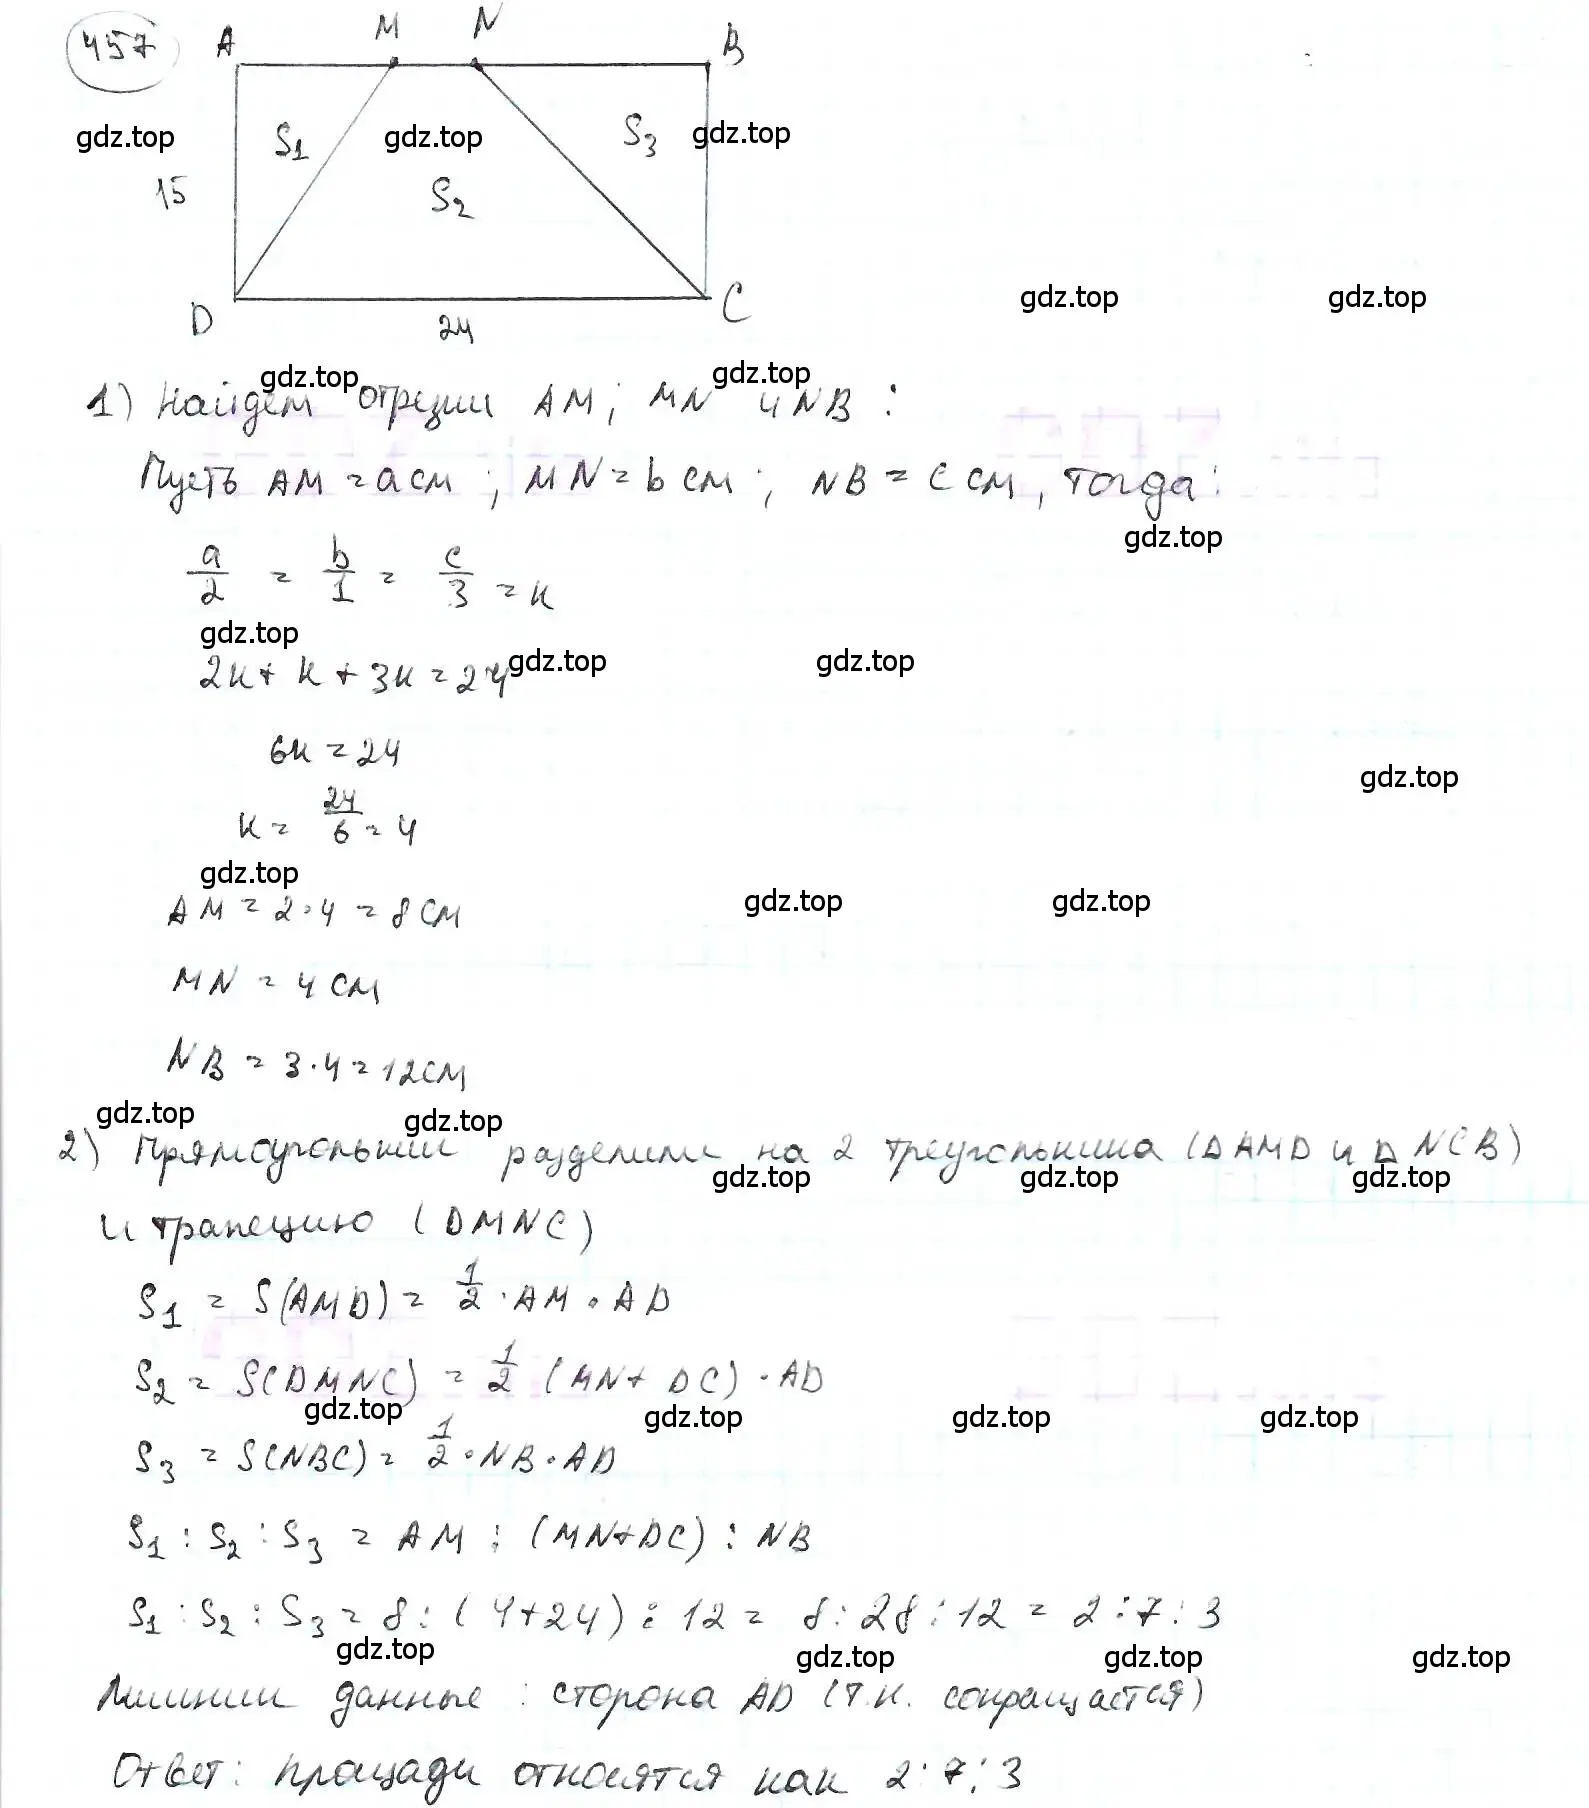 457 A M N B
gdz.top gdz.top gdz.top
S1 S3
15 S2
gdz.top gdz.top
D C
24
gdz.top gdz.top
1) Найдем отрезки AM; MN и NB:
Пусть AM = a см; MN = b см; NB = c см, тогда:
gdz.top
a/2 = b/1 = c/3 = к
gdz.top gdz.top gdz.top
2к + к + 3к = 24
6к = 24
gdz.top
к = 24/6 = 4
gdz.top gdz.top gdz.top
AM = 2·4 = 8 см
MN = 4 см
NB = 3·4 = 12 см
gdz.top gdz.top
2) Прямоугольник разделили на 2 треугольника (ΔAMD и Δ NCB)
gdz.top gdz.top gdz.top
и трапецию (DMNC)
S1 = S(AMD) = 1/2 · AM · AD
S2 = S(DMNC) = 1/2 (MN + DC) · AD
gdz.top gdz.top gdz.top gdz.top
S3 = S(NBC) = 1/2 · NB · AD
S1 : S2 : S3 = AM : (MN+DC) : NB
S1 : S2 : S3 = 8 : (4+24) : 12 = 8 : 28 : 12 = 2 : 7 : 3
gdz.top gdz.top gdz.top gdz.top
Лишнии данные : сторона AD (т.к. сокращается)
Ответ: площади относятся как 2 : 7 : 3